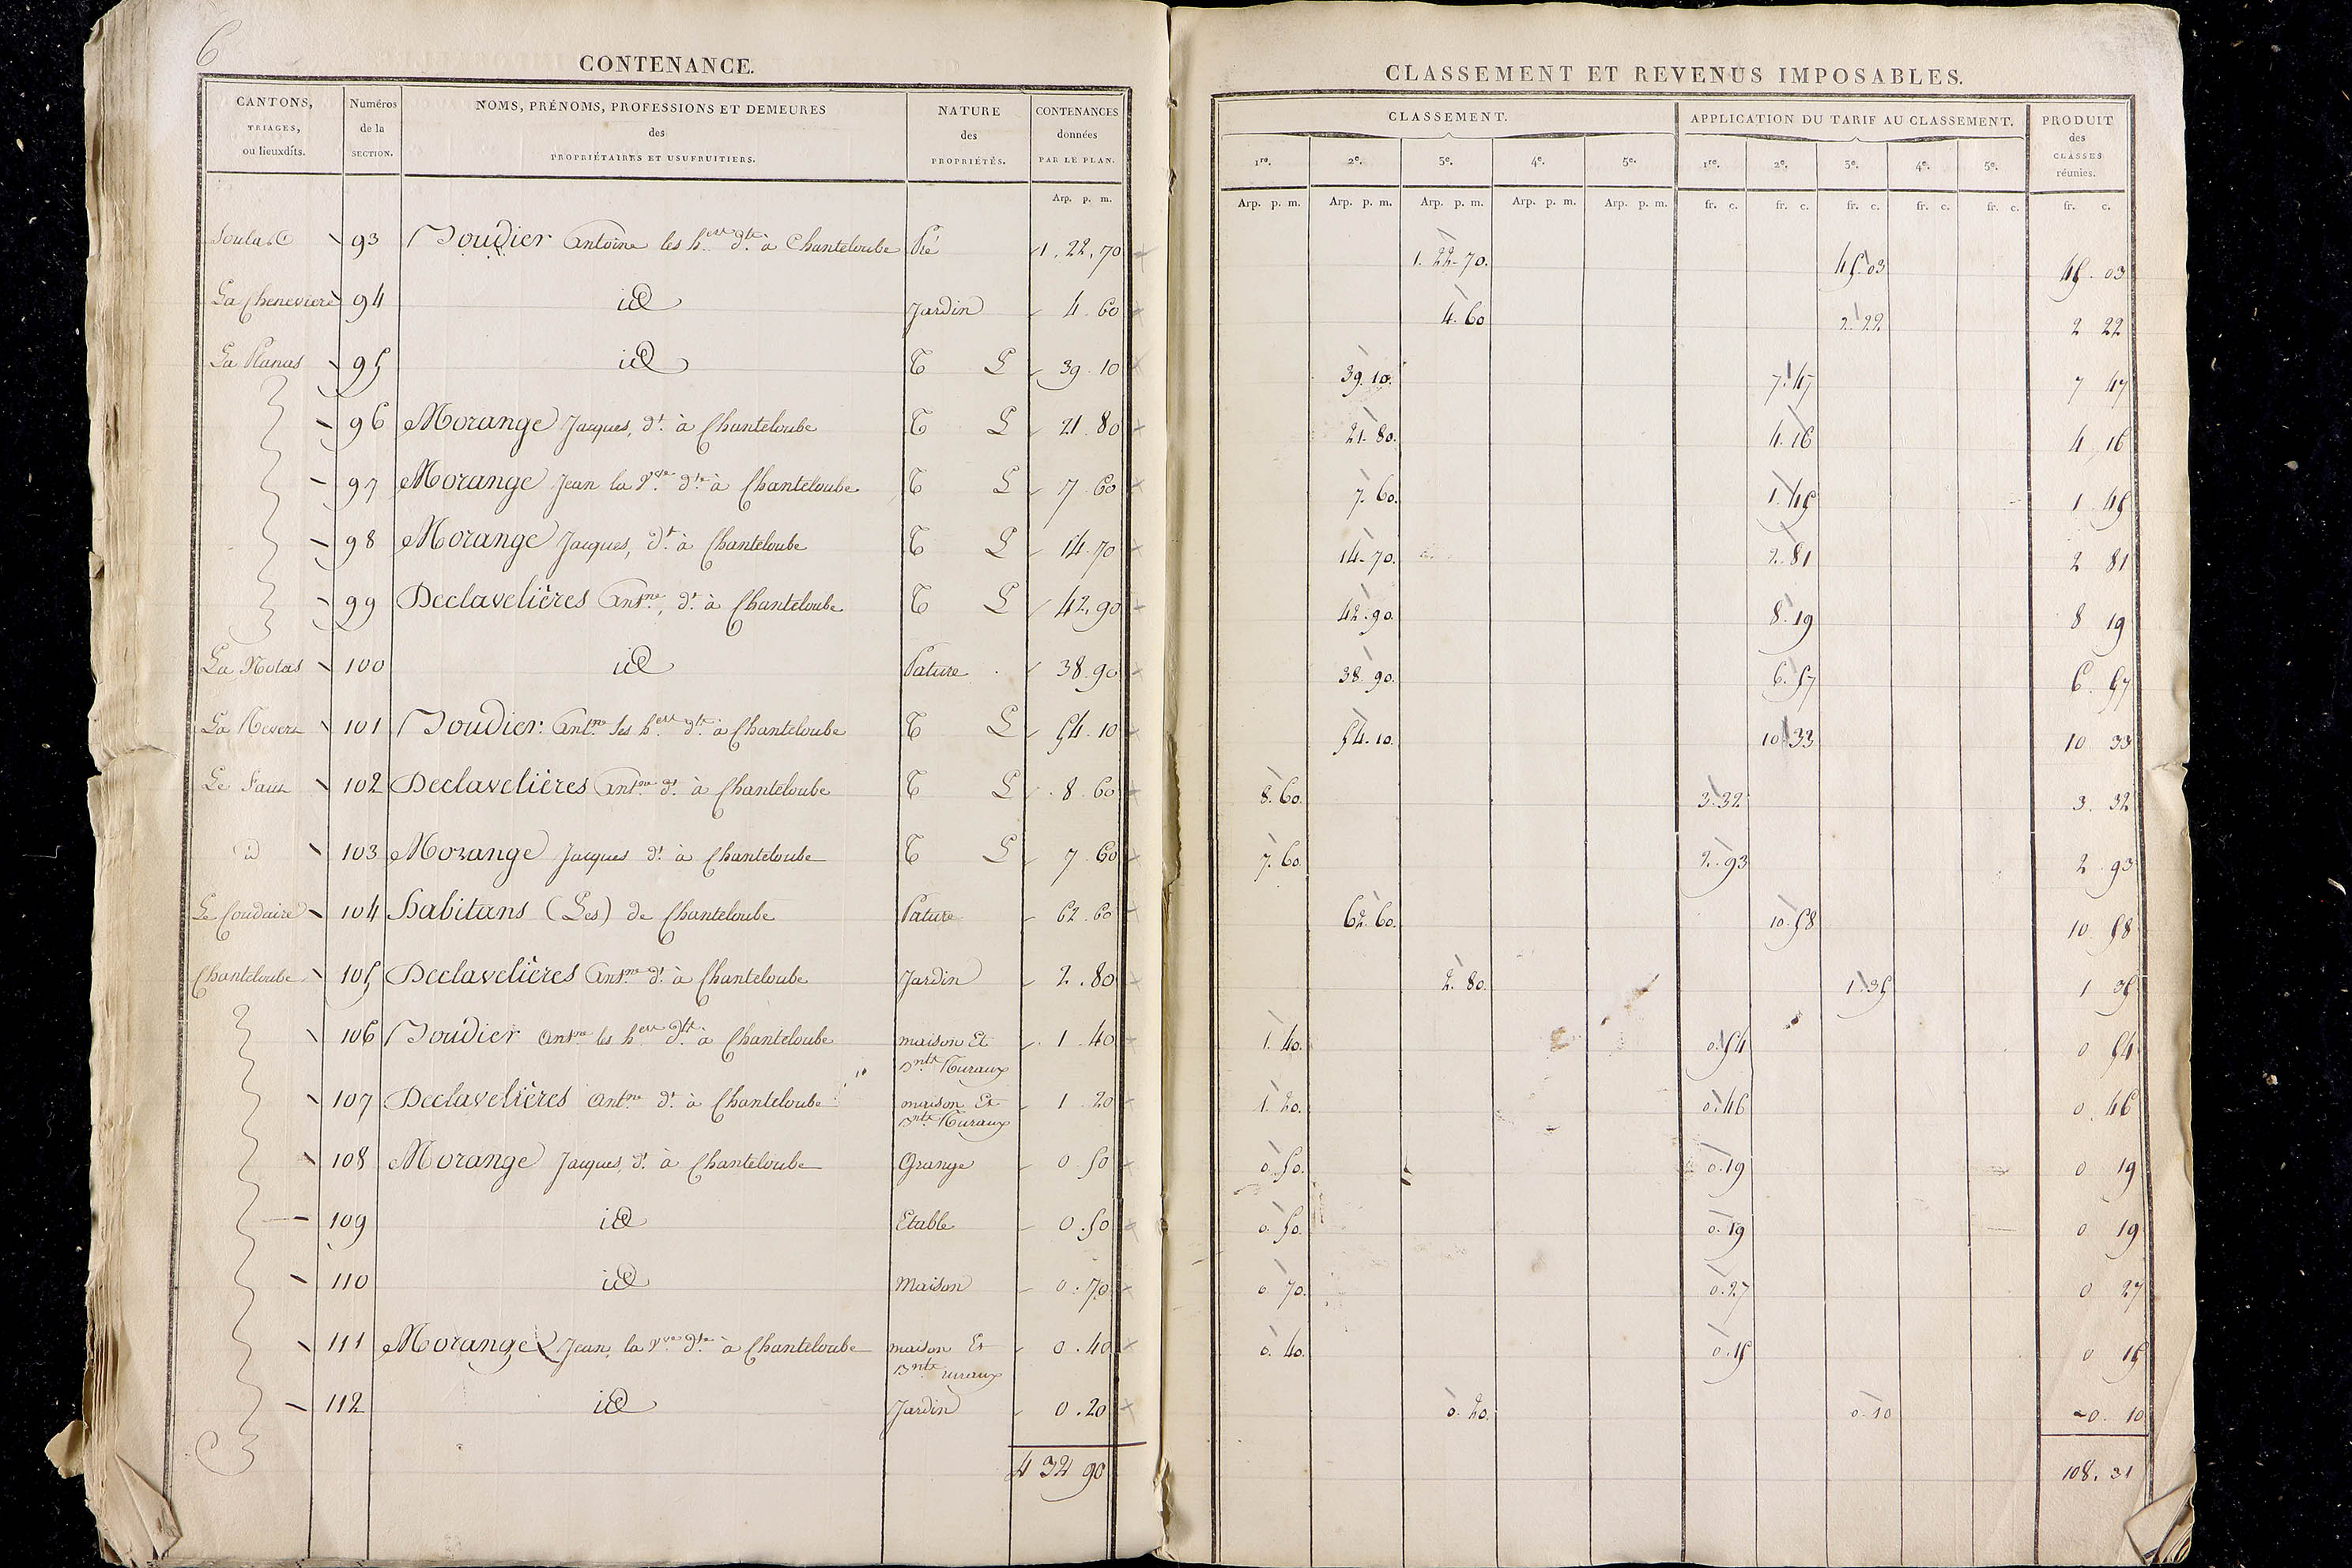 6
CONTENANCE.
CANTONS, TRIAGES, ou lieuxdits. Numéros de la SECTION. NOMS, PRÉNOMS, PROFESSIONS ET DEMEURES des PROPRIÉTAIRES ET USUFRUITIERS. NATURE des PROPRIÉTÉS. CONTENANCES données PAR LE PLAN.
Arp. p. m.
CLASSEMENT ET REVENUS IMPOSABLES.
CLASSEMENT. APPLICATION DU TARIF AU CLASSEMENT. PRODUIT des CLASSES réunies.
1re. 2e. 3e. 4e. 5e. 1re. 2e. 3e. 4e. 5e.
Arp. p. m. Arp. p. m. Arp. p. m. Arp. p. m. Arp. p. m. fr. c. fr. c. fr. c. fr. c. fr. c. fr. c.
93 Antoine les hers dts à Chanteloube Pré 1.22,70 1.22-70. 45.03 45.03
La Cheneviere 94 id Jardin 4.60 4.60 2.22 2 22
La Planas 95 id T L 39.10 39.10. 7.47 7 47
96 Morange Jacques, dt. à Chanteloube T L 21.80 21.80. 4.16 4.16
97 Morange Jean la Vve dte à Chanteloube T L 7.60 7.60. 1.45 1 45
98 Morange Jacques, dt à Chanteloube T L 14.70 14-70. 2.81 2 81
99 Declavelières Antne, dt. à Chanteloube T L 42,90 42.90. 8.19 8 19
100 id Pature 38.90 38.90. 6.57 6.57
101 Antne les hers dts à Chanteloube T L 54.10 54.10. 10.33 10 33
102 Declavelières Antne dt. à Chanteloube T L 8.60 8.60. 3.32 3.32
id 103 Morange Jacques dt. à Chanteloube T L 7.60 7.60. 2.93 2.93
Le Coudaire 104 habitans (Les) de Chanteloube Pature 62.60 62.60. 10.58 10 58
Chanteloube 105 Declavelières Antne dt. à Chanteloube Jardin 2.80 2.80. 1.35 1 35
106 Antne les hers dts à Chanteloube maison Et Bnts Ruraux 1.40 1.40. 0.54 0 54
107 Declavelières Antne dt. à Chanteloube maison Et Bnts Ruraux 1.20 1.20. 0.46 0.46
108 Morange Jacques, dt. à Chanteloube Grange 0.50 0.50. 0.19 0 19
109 id Etable 0.50 0.50. 0.19 0 19
110 id Maison 0.70 0.70. 0.27 0 27
111 Morange Jean, la Vve dte à Chanteloube maison Et Bnts ruraux 0.40 0.40. 0.15 0 15
112 id Jardin 0.20 0.20. 0.10 0.10
4 32 90 108.31